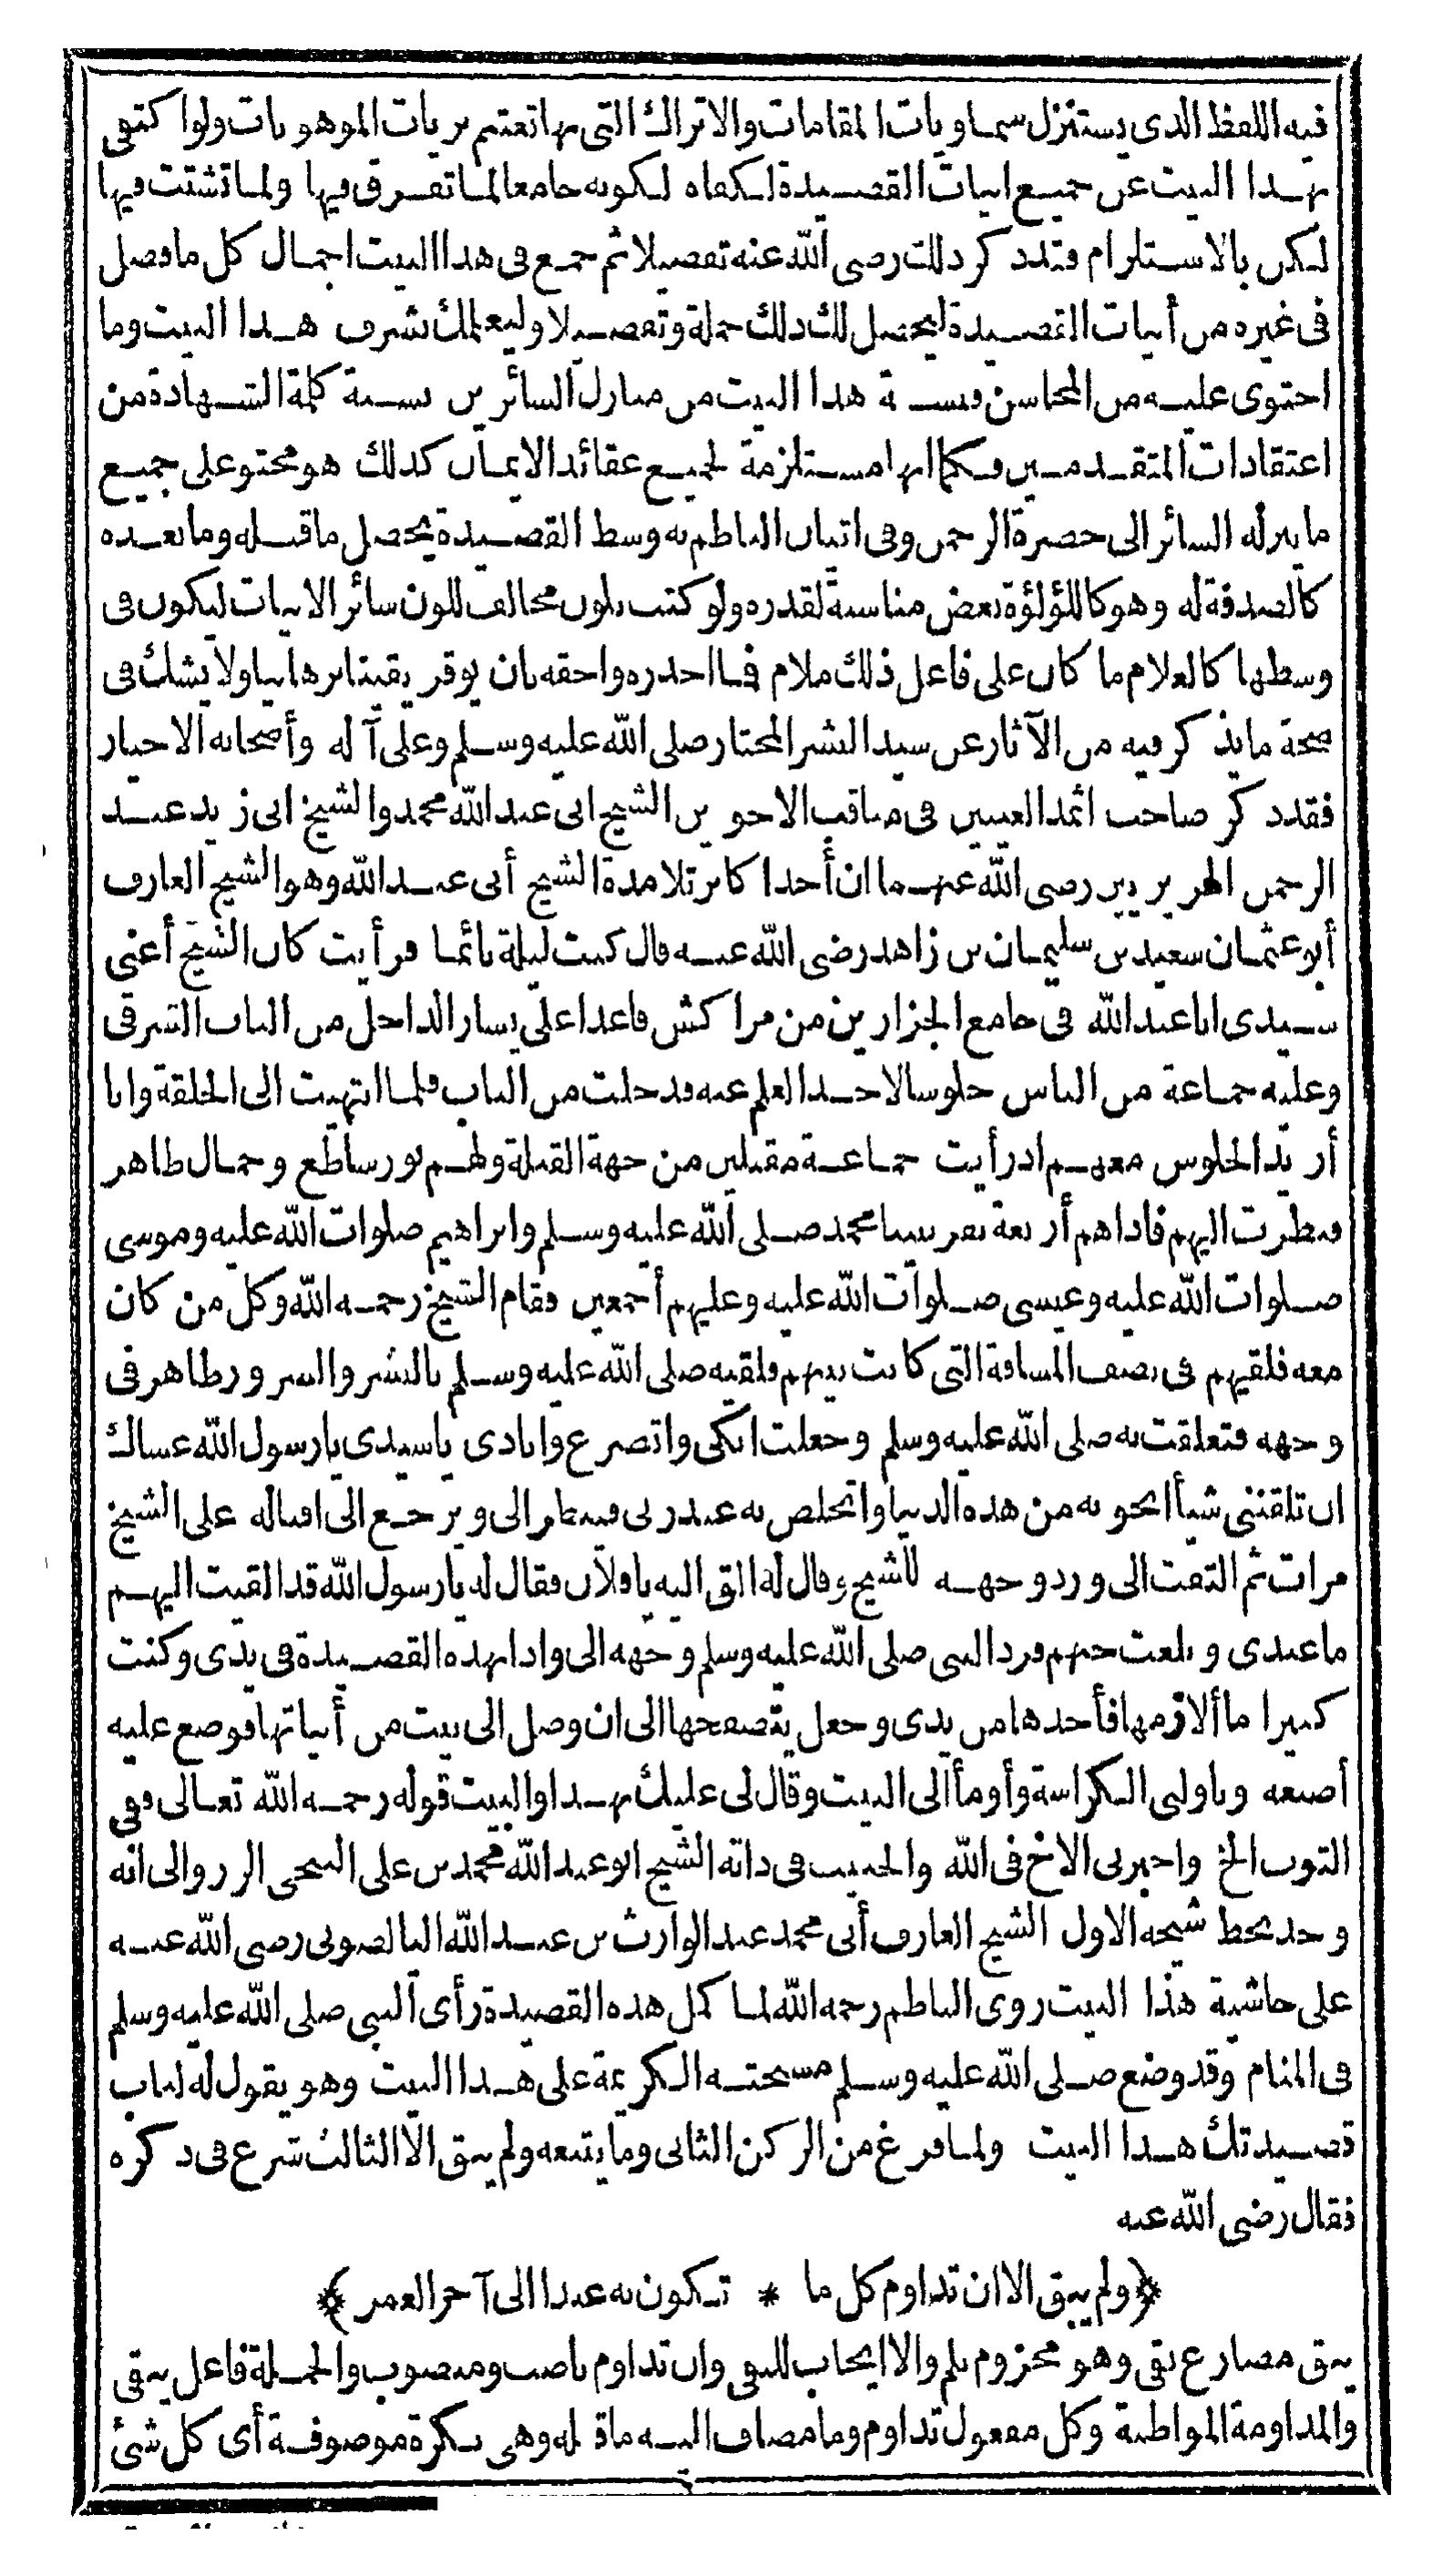 فيه اللفظ الذى يستنزل سماويات المقامات والاتراك التى بها تغتنم بريات الموهوبات ولو اكتفى
بهذا البيت عن جميع ابيات القصيدة لكفاه لكونه جامعا لما تفرق فيها ولما تشتت فيها
لكن بالاستلزام فقد ذكر ذلك رضى الله عنه تفصيلا ثم جمع فى هذا البيت اجمال كل ما فصل
فى غيره من أبيات القصيدة ليحصل لك ذلك جملة وتفصيلا وليعلمك بشرف هذا البيت وما
احتوى عليه من المحاسن فنسبة هذا البيت من منازل السائرين نسبة كلمة الشهادة من
اعتقادات المتقدمين فكما انها مستلزمة لجميع عقائد الايمان كذلك هو محتو على جميع
ما ينزله السائر الى حضرة الرحمن وفى اتيان الناظم به وسط القصيدة يحصل ما قبله وما بعده
كالصدفة له وهو كاللؤلؤة بعض مناسبة لقدره ولو كتب بلون مخالف للون سائر الابيات ليكون فى
وسطها كالعلام ما كان على فاعل ذلك ملام فما اجدره واحقه بان يوقر يقينا برهانيا ولا يشك فى
صحة ما يذكر فيه من الآثار عن سيد البشر المختار صلى الله عليه وسلم وعلى آله وأصحابه الاخيار
فقد ذكر صاحب اثمد العينين فى مناقب الاخوين الشيخ ابى عبد الله محمد والشيخ ابى زيد عبد
الرحمن الهزميرين رضى الله عنهما ان أحدا كابر تلامذة الشيخ أبى عبد الله وهو الشيخ العارف
أبو عثمان سعيد بن سليمان بن زاهد رضى الله عنه قال كنت ليلة نائما فرأيت كان الشيخ أعنى
سيدى ابا عبد الله فى جامع الجزارين من مراكش قاعدا على يسار الداخل من الباب الشرقى
وعليه جماعة من الناس جلوسا لاخذ العلم عنه فدخلت من الباب فلما انتهيت الى الحلقة وانا
أريد الجلوس معهم اذ رأيت جماعة مقبلين من جهة القبلة ولهم نور ساطع وجمال ظاهر
فنظرت اليهم فاذا هم أربعة نفر نبينا محمد صلى الله عليه وسلم وابراهيم صلوات الله عليه وموسى
صلوات الله عليه وعيسى صلوات الله عليه وعليهم أجمعين فقام الشيخ رحمه الله وكل من كان
معه فلقيهم فى نصف المسافة التى كانت بينهم فلقيه صلى الله عليه وسلم بالبشر والسرور ظاهر فى
وجهه فتعلقت به صلى الله عليه وسلم وجعلت ابكى واتضرع وانادى ياسيدى يارسول الله عساك
ان تلقننى شيأ انجو به من هذه الدنيا واتخلص به عند ربى فينظر الى ويرجع الى اقباله على الشيخ
مرات ثم التفت الى ورد وجهه للشيخ وقال له الق اليه يا فلان فقال له يارسول الله قد القيت اليهم
ما عندى وبلغت جهدهم فرد النبى صلى الله عليه وسلم وجهه الى واذا بهذه القصيدة فى يدى وكنت
كثيرا ما ألازمها فأخذها من يدى وجعل يتصفحها الى ان وصل الى بيت من أبياتها فوضع عليه
أصبعه وناولنى الكراسة وأومأ الى البيت وقال لى عليك بهذا والبيت قوله رحمه الله تعالى وفى
التوب الخ واخبرنى الاخ فى الله والحبيب فى ذاته الشيخ ابو عبد الله محمد بن على الزروالى انه
وجد بخط شيخه الاول الشيخ العارف أبى محمد عبد الوارث بن عبد الله اليالصوتى رضى الله عنه
على حاشية هذا البيت روى الناظم رحمه الله لما كمل هذه القصيدة رأى النبى صلى الله عليه وسلم
فى المنام وقد وضع صلى الله عليه وسلم مسبحته الكريمة على هذا البيت وهو يقول له لباب
قصيدتك هذا البيت ولما فرغ من الركن الثانى وما يتبعه ولم يبق الا الثالث شرع فى ذكره
فقال رضى الله عنه
﴿ولم يبق الا ان تداوم كل ما * تكون به عبدا الى آخر العمر﴾
يبق مضارع بقى وهو مجزوم بلم والا ايجاب للنفى وان تداوم ناصب ومنصوب والجملة فاعل يبقى
والمداومة المواظبة وكل مفعول تداوم وما مضاف اليه ما قبله وهى نكرة موصوفة أى كل شئ